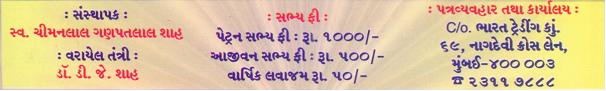 : સંસ્થાપક :
સ્વ. ચીમનલાલ ગણપતલાલ શાહ
: વરાયેલ તંત્રી :
ડૉ. ડી. જે. શાહ
: સભ્ય ફી :
પેટ્રન સભ્ય ફી : રૂા. ૧૦૦૦/-
આજીવન સભ્ય ફી : રૂા. ૫૦૦/-
વાર્ષિક લવાજમ રૂા. ૫૦/-
: પત્રવ્યવહાર તથા કાર્યાલય :
C/o. ભારત ટ્રેડીંગ કાું.
૬૯, નાગદેવી ક્રોસ લેન,
મુંબઈ-૪૦૦ ૦૦૩
☎ ૨૩૧૧ ૭૮૮૮